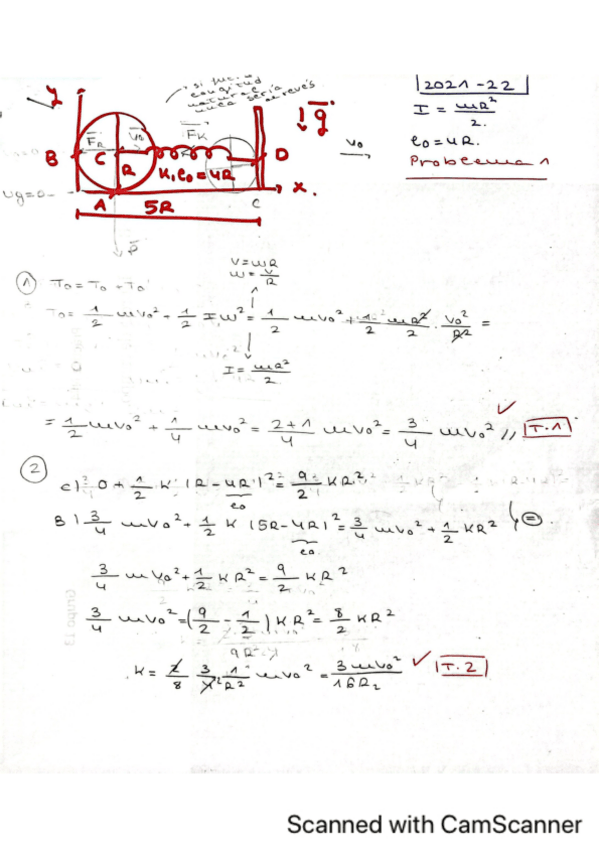 2021-22
I = mR²/2.
l₀ = 4R.
Problema 1
si fuera longitud natural sería
y
g
v₀
F_R
F_K
B
C
R
K, l₀ = 4R
D
x.
A
5R
C
P
① T₀ = T₀ + T₀
v = ωR
ω = v/R
T₀ = 1/2 mv₀² + 1/2 Iω² = 1/2 mv₀² + 1/2 · mR²/2 · v₀²/R² =
I = mR²/2
= 1/2 mv₀² + 1/4 mv₀² = 2+1/4 mv₀² = 3/4 mv₀² // ✓ T.1
②
C) 0 + 1/2 K (R - 4R)² = 9/2 KR²
l₀
B) 3/4 mv₀² + 1/2 K (5R - 4R)² = 3/4 mv₀² + 1/2 KR² =
l₀
3/4 mv₀² + 1/2 KR² = 9/2 KR²
3/4 mv₀² = (9/2 - 1/2) KR² = 8/2 KR²
K = 2/8 · 3/4 · 1/R² mv₀² = 3mv₀²/16R₂ ✓ T.2
Grupo 13
Scanned with CamScanner